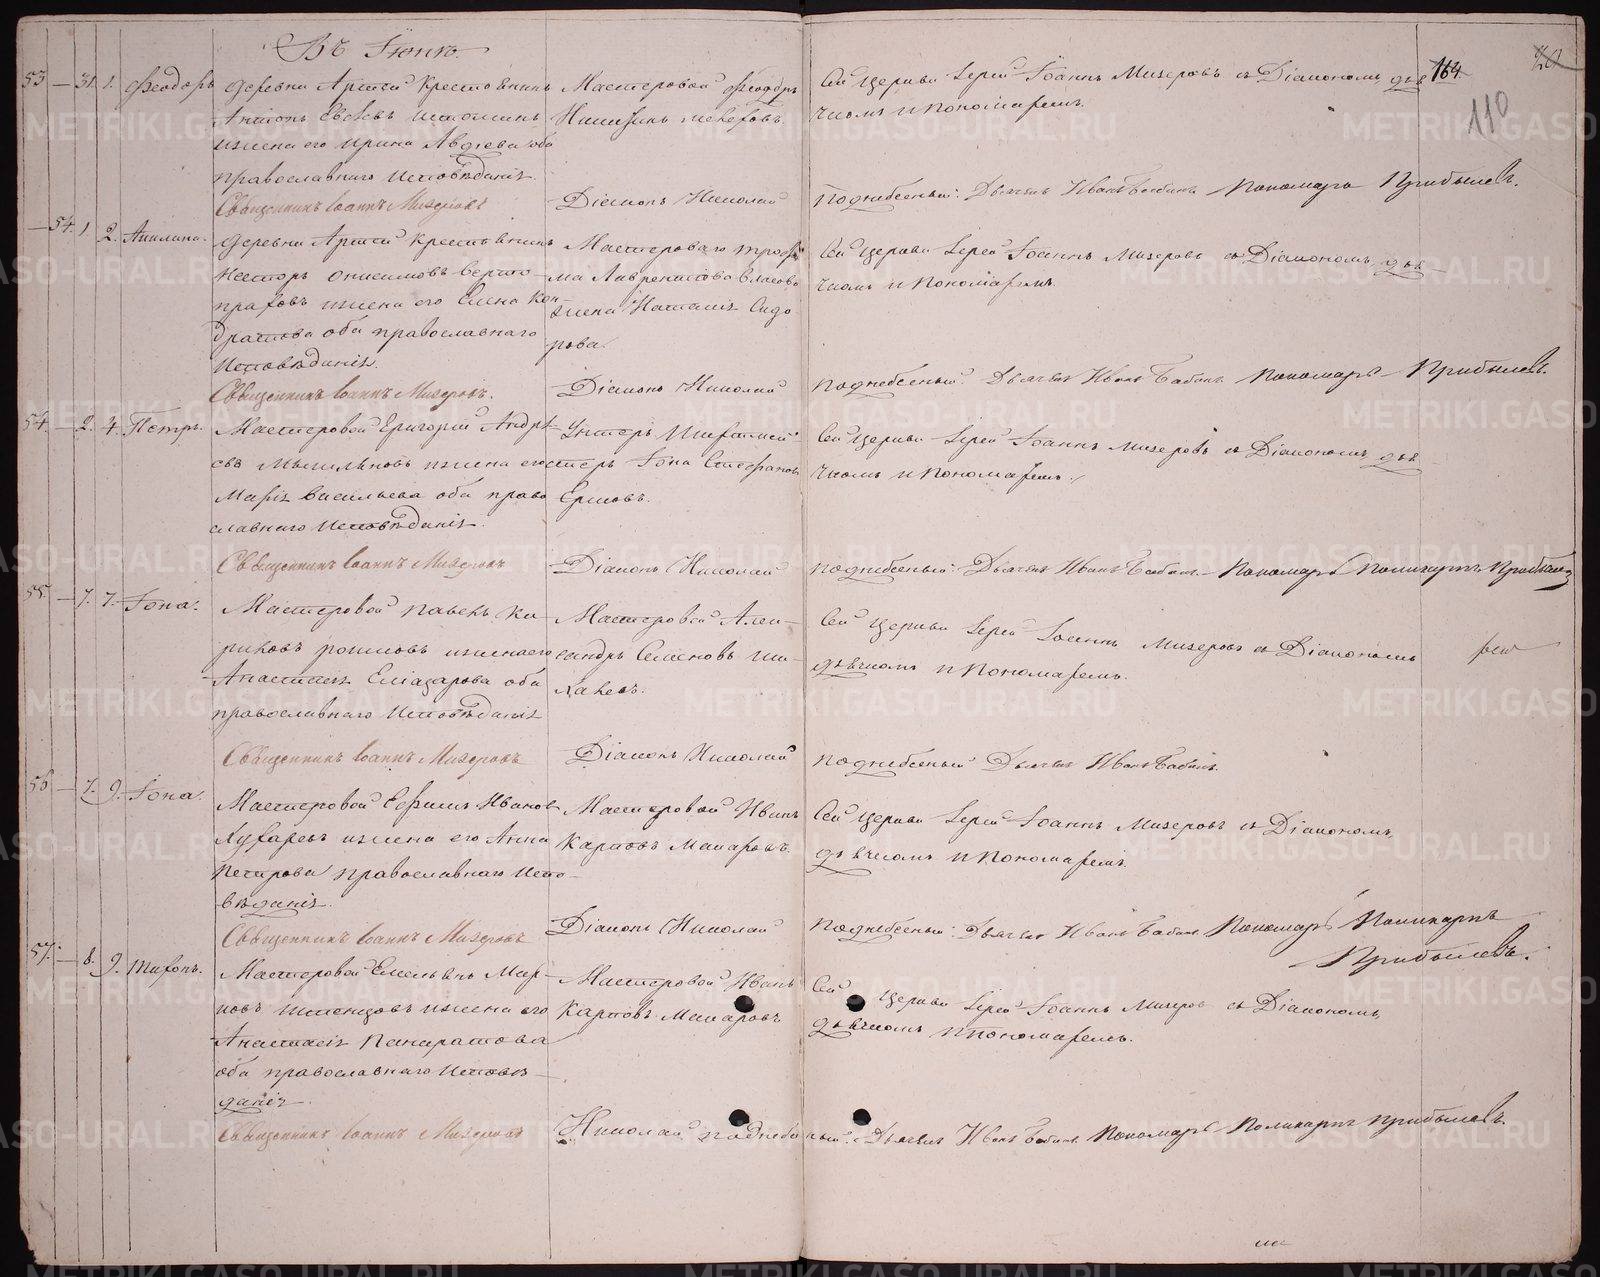 Въ Іюнѣ
164
20
110
53 – 31. 1. Феодоръ
деревни Артей Крестьянинъ
Антонъ
и жена его Ирина Авдіева оба
православнаго Исповѣданія.
Мастеровой Феодоръ
Сей Церкви Іерей Іоаннъ Мизеровъ съ Діакономъ дья
чкомъ и Пономаремъ.
Священникъ Іоаннъ Мизеровъ
Діаконъ Николай
Поднебесный. Дьячекъ Иванъ Бабинъ Пономарь Прибылевъ.
– 54. 1. 2. Акилина.
деревни Артей Крестьянинъ
Несторъ Онисимовъ
и жена его Елена Кон-
дратова оба православнаго
Исповѣданія.
Мастероваго Трофи
ма Лаврентьева Власова
жена Наталія Сидо
рова.
Сей Церкви Іерей Іоаннъ Мизеровъ съ Діакономъ дья-
чкомъ и Пономаремъ.
Священникъ Іоаннъ Мизеровъ.
Діаконъ Николай
Поднебесный. Дьячекъ Иванъ Бабинъ Пономарь Прибылевъ.
54. – 2. 4. Петръ.
Мастеровой Григорій Андрѣ-
евъ Мыльниковъ и жена его
Марія Васильева оба право
славнаго Исповѣданія.
Унтеръ Шихтмей-
стеръ Іона Стефановъ
Ершовъ.
Сей Церкви Іерей Іоаннъ Мизеровъ съ Діакономъ дья-
чкомъ и Пономаремъ.
Священникъ Іоаннъ Мизеровъ
Діаконъ Николай
Поднебесный. Дьячекъ Иванъ Бабинъ. Пономарь Поликарпъ Прибылевъ
55. – 7. 7. Іона.
Мастеровой Павелъ Ки
риловъ и жена его
Анастасія Еліазарова оба
православнаго Исповѣданія
Мастеровой Алек-
сандръ Семеновъ
Сей Церкви Іерей Іоаннъ Мизеровъ съ Діакономъ
дьячкомъ и Пономаремъ.
Священникъ Іоаннъ Мизеровъ
Діаконъ Николай
Поднебесный Дьячекъ Иванъ Бабинъ.
56 – 7. 9. Іона.
Мастеровой Ефимъ Иванов
Хухаревъ и жена его Анна
Петрова православнаго Испо-
вѣданія.
Мастеровой Иванъ
Карповъ Макаровъ.
Сей Церкви Іерей Іоаннъ Мизеровъ съ Діакономъ,
дьячкомъ и Пономаремъ.
Священникъ Іоаннъ Мизеровъ
Діаконъ Николай
Поднебесный. Дьячекъ Иванъ Бабинъ Пономарь Поликарпъ
Прибылевъ.
57. – 8. 9. Тихонъ.
Мастеровой Емельянъ Мар-
ковъ и жена его
Анастасія Панкратова
оба православнаго Исповѣ-
данія.
Мастеровой Иванъ
Карповъ Макаровъ
Сей Церкви Іерей Іоаннъ Мизеров съ Діакономъ,
дьячкомъ и пономаремъ.
Священникъ Іоаннъ Мизеровъ
Николай Поднебесный. Дьячекъ Иванъ Бабинъ Пономарь Поликарпъ Прибылевъ.
METRIKI.GASO-URAL.RU